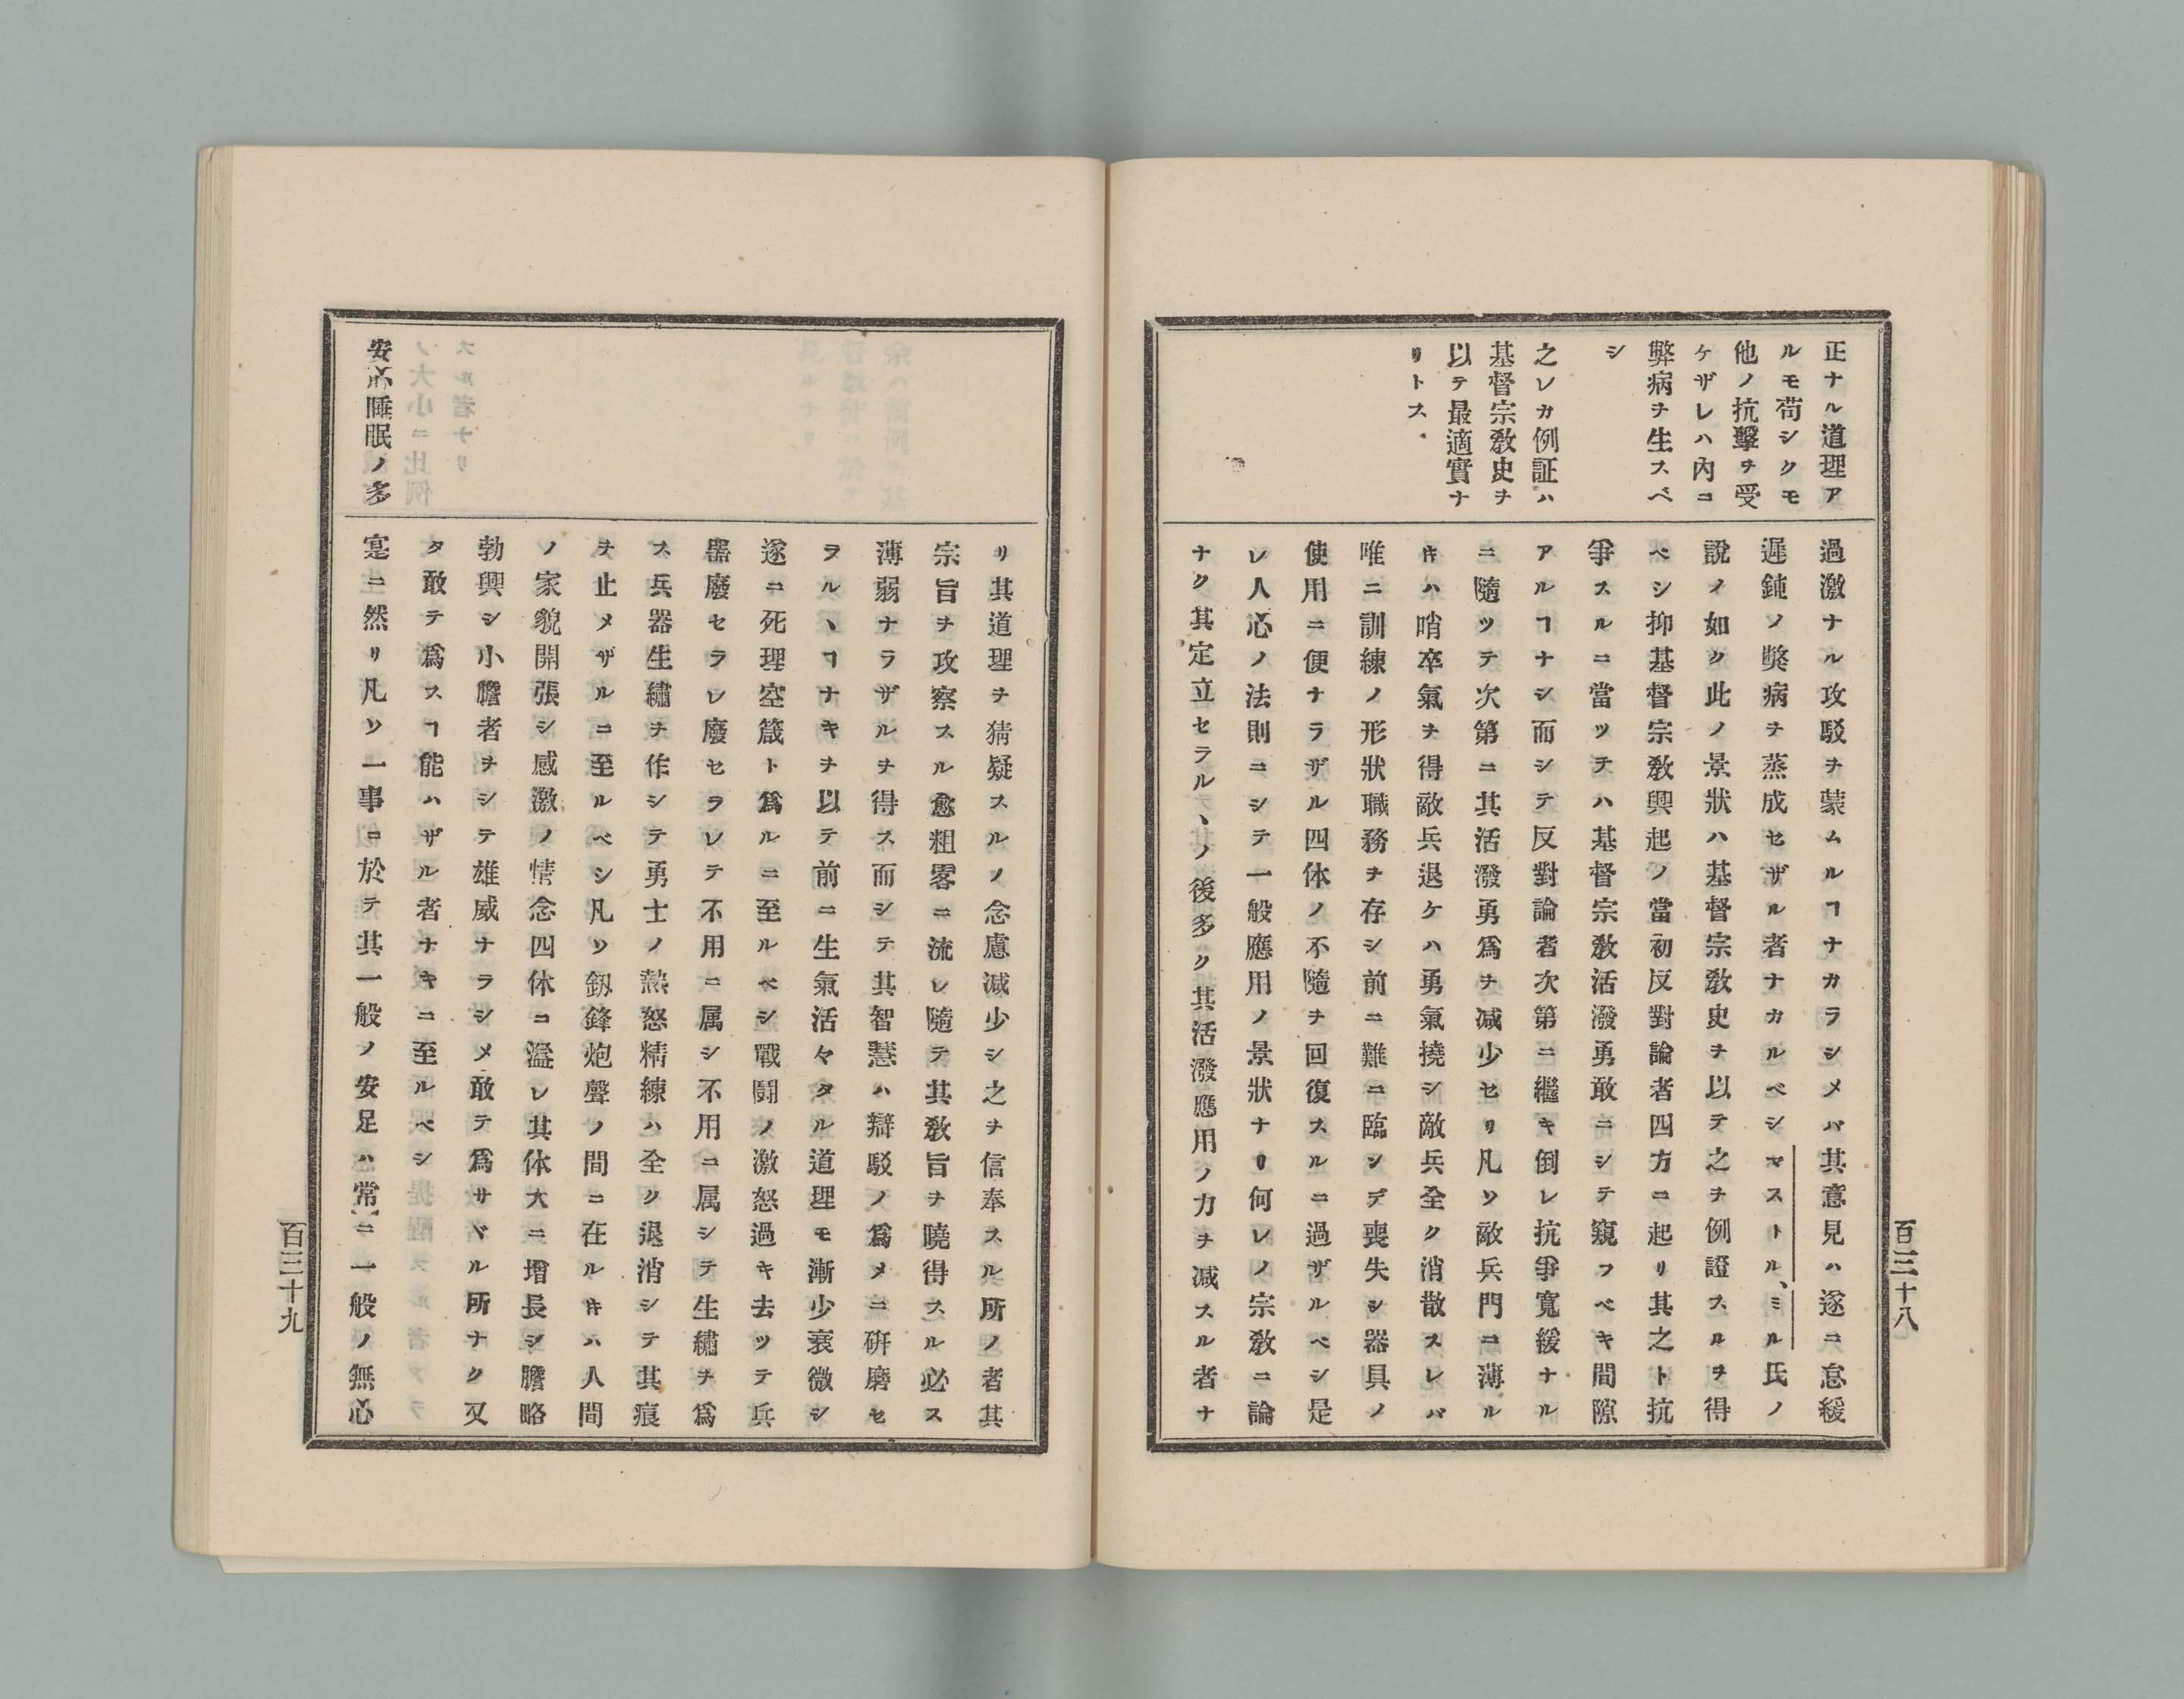 百三十八
正ナル道理ア
ルモ苟シクモ
他ノ抗擊ヲ受
ケザレハ內ニ
弊病ヲ生スベ
シ
之レカ例証ハ
基督宗敎史ヲ
以テ最適實ナ
リトス
過激ナル攻駁ヲ蒙ムルヿナカラシメバ其意見ハ遂ニ怠緩
遲鈍ノ獘病ヲ蒸成セザル者ナカルベシマストル、ミル氏ノ
說ノ如ク此ノ景狀ハ基督宗敎史ヲ以テ之ヲ例證スルヲ得
ベシ抑基督宗敎興起ノ當初反對論者四方ニ起リ其之ト抗
爭スルニ當ツテハ基督宗敎活潑勇敢ニシテ窺フベキ間隙
アルヿナシ而シテ反對論者次第ニ繼キ倒レ抗爭寬緩ナル
ニ隨ツテ次第ニ其活潑勇爲ヲ减少セリ凡ソ敵兵門ニ薄ル
キハ哨卒氣ヲ得敵兵退ケハ勇氣撓シ敵兵全ク消散スレバ
唯ニ訓練ノ形狀職務ヲ存シ前ニ難ニ臨シデ喪失シ器具ノ
使用ニ便ナラザル四体ノ不隨ヲ回復スルニ過ザルベシ是
レ人心ノ法則ニシテ一般應用ノ景狀ナリ何レノ宗敎ニ論
ナク其定立セラルヽノ後多ク其活潑應用ノ力ヲ减スル者ナ
安危睡眠ノ多
リ其道理ヲ猜疑スルノ念慮减少シ之ヲ信奉スル所ノ者其
宗旨ヲ攻察スル愈粗畧ニ流レ隨テ其敎旨ヲ曉得スル必ス
薄弱ナラザルヲ得ス而シテ其智慧ハ辯駁ノ爲メニ硏磨セ
ラルヽヿナキヲ以テ前ニ生氣活々タル道理モ漸少衰微シ
遂ニ死理空箴ト爲ルニ至ルベシ戰鬪ノ激怒過キ去ツテ兵
器廢セラレ廢セラレテ不用ニ属シ不用ニ属シテ生繡ヲ爲
ス兵器生繡ヲ作シテ勇士ノ熱怒精練ハ全ク退消シテ其痕
ヲ止メザルニ至ルベシ凡ソ釼鋒炮聲ノ間ニ在ルキハ人間
ノ家貌開張シ感激ノ情念四体ニ溢レ其体大ニ增長シ膽略
勃興シ小膽者ヲシテ雄威ナラシメ敢テ爲サヾル所ナク又
タ敢テ爲スヿ能ハザル者ナキニ至ルベシ
寔ニ然リ凡ソ一事ニ於テ其一般ノ安足ハ常ニ一般ノ無心
百三十九